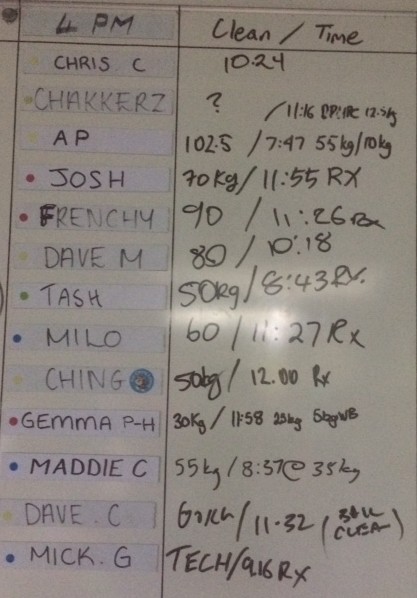 4 PM Clean / Time
CHRIS C 10:24
CHAKKERZ ? / 11:16
AP 102.5 / 7:47 55kg/10kg
JOSH 70kg / 11:55 RX
FRENCHY 90 / 11:26 RX
DAVE M 80 / 10:18
TASH 50kg / 8:43 RX.
MILO 60 / 11:27 Rx
CHING 50kg / 12.00 Rx
GEMMA P-H 30kg / 11:58 25kg 5kgWB
MADDIE C 55kg / 8:37@ 35kg
DAVE. C / 11-32 ( CLEAN)
MICK. G TECH/9.16 RX